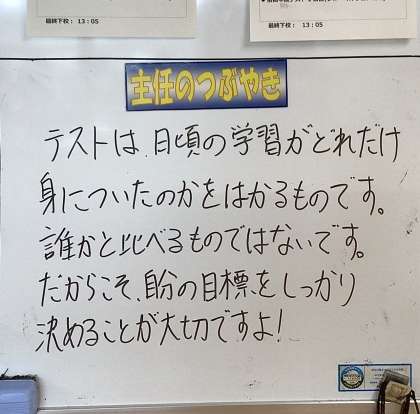 最終下校： 13：05
最終下校： 13：05
主任のつぶやき
テストは、日頃の学習がどれだけ
身についたのかをはかるものです。
誰かと比べるものではないです。
だからこそ、自分の目標をしっかり
決めることが大切ですよ!